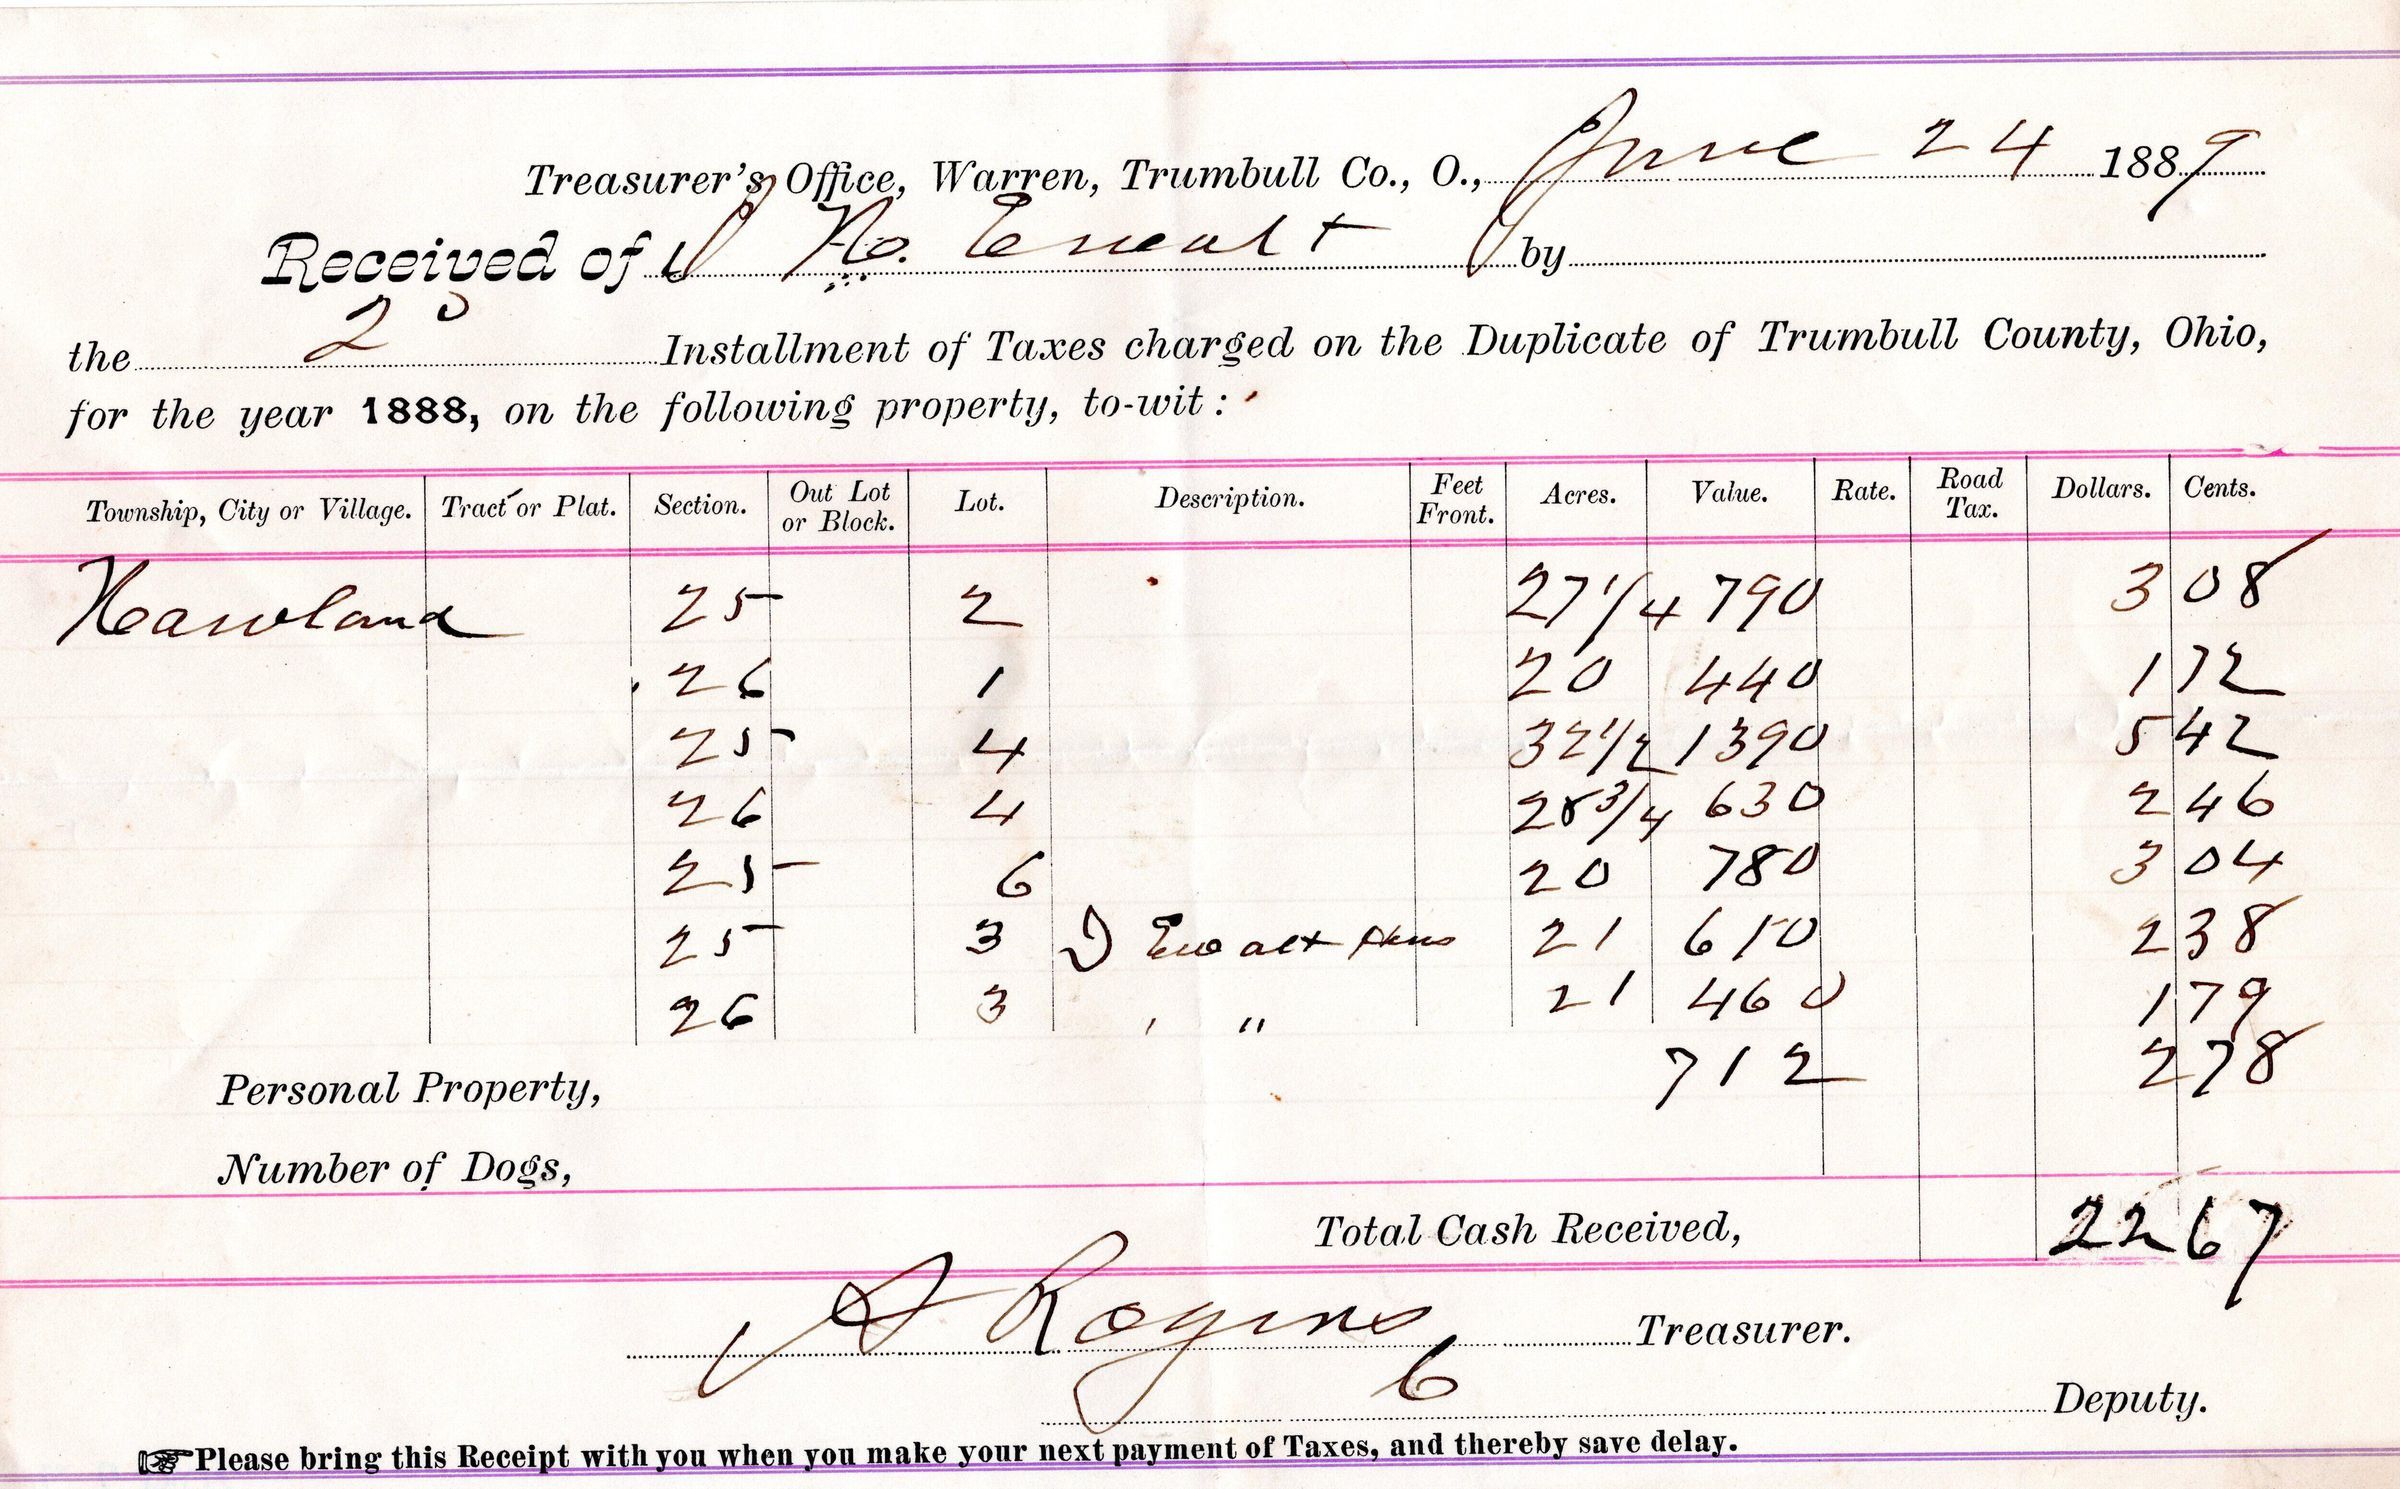 Treasurer's Office, Warren, Trumbull Co., O., June 24 1889
Received of J H. Ewalt by
the 2d Installment of Taxes charged on the Duplicate of Trumbull County, Ohio,
for the year 1888, on the following property, to-wit:
Township, City or Village. Tract or Plat. Section. Out Lot or Block. Lot. Description. Feet Front. Acres. Value. Rate. Road Tax. Dollars. Cents.
Howland 25 2 27 1/4 790 3 08
26 1 20 440 1 72
25 4 32 1/2 1390 5 42
26 4 28 3/4 630 2 46
25 6 20 780 3 04
25 3 J Ewalt 21 610 2 38
26 3 " " 21 460 1 79
Personal Property, 712 2 78
Number of Dogs,
Total Cash Received, 22 67
Treasurer.
Deputy.
☞Please bring this Receipt with you when you make your next payment of Taxes, and thereby save delay.